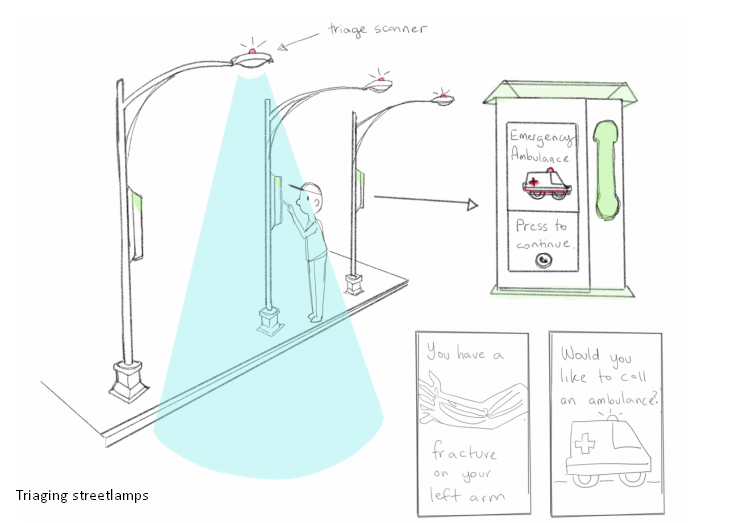 triage scanner
Emergency
Ambulance
Press to
continue.
You have a
fracture
on your
left arm
Would you
like to call
an ambulance?
Triaging streetlamps